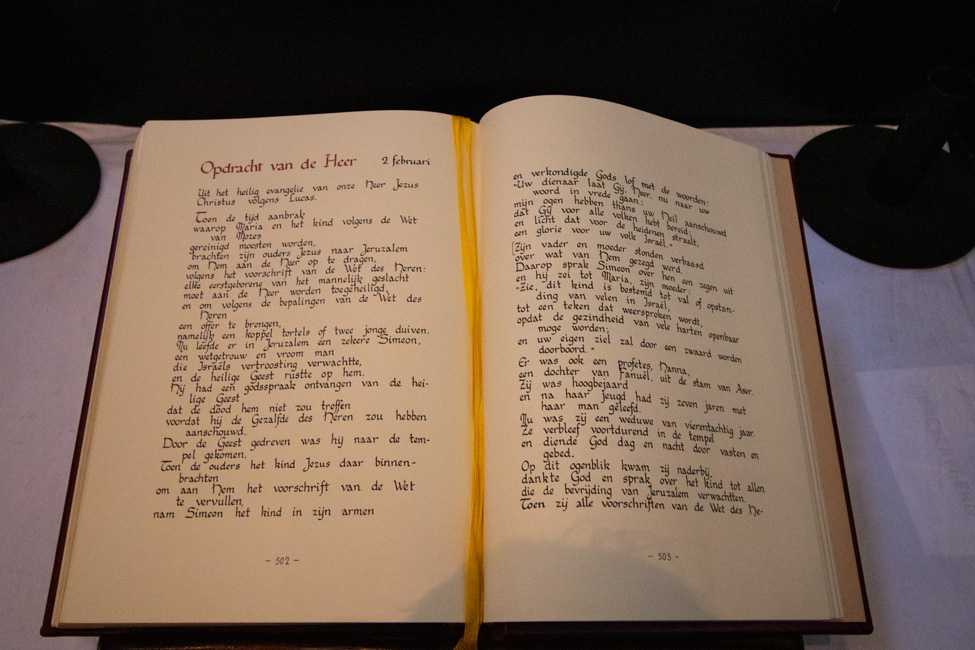 Opdracht van de Heer 2 februari
Uit het heilig evangelie van onze Heer Jezus
Christus volgens Lucas.
Toen de tijd aanbrak
waarop Maria en het kind volgens de Wet
van Mozes
gereinigd moesten worden,
brachten zijn ouders Jezus naar Jeruzalem
om Hem aan de Heer op te dragen,
volgens het voorschrift van de Wet des Heren:
elke eerstgeborene van het mannelijk geslacht
moet aan de Heer worden toegeheiligd,
en om volgens de bepalingen van de Wet des
Heren
een offer te brengen,
namelijk een koppel tortels of twee jonge duiven.
Nu leefde er in Jeruzalem een zekere Simeon,
een wetgetrouw en vroom man
die Israëls vertroosting verwachtte,
en de heilige Geest rustte op hem.
Hij had een godsspraak ontvangen van de hei-
lige Geest
dat de dood hem niet zou treffen
voordat hij de Gezalfde des Heren zou hebben
aanschouwd.
Door de Geest gedreven was hij naar de tem-
pel gekomen.
Toen de ouders het kind Jezus daar binnen-
brachten
om aan Hem het voorschrift van de Wet
te vervullen,
nam Simeon het kind in zijn armen
- 502 -
en verkondigde Gods lof met de woorden:
"Uw dienaar laat Gij, Heer, nu naar uw
woord in vrede gaan:
mijn ogen hebben thans uw Heil aanschouwd
dat Gij voor alle volken hebt bereid;
een licht dat voor de heidenen straalt,
een glorie voor uw volk Israël."
[Zijn vader en moeder stonden verbaasd
over wat van Hem gezegd werd.
Daarop sprak Simeon over hen een zegen uit
en hij zei tot Maria, zijn moeder:
"Zie, dit kind is bestemd tot val of opstan-
ding van velen in Israël,
tot een teken dat weersproken wordt,
opdat de gezindheid van vele harten openbaar
moge worden;
en uw eigen ziel zal door een zwaard worden
doorboord."
Er was ook een profetes, Hanna,
een dochter van Fanuël, uit de stam van Aser.
Zij was hoogbejaard
en na haar jeugd had zij zeven jaren met
haar man geleefd.
Nu was zij een weduwe van vierentachtig jaar.
Ze verbleef voortdurend in de tempel
en diende God dag en nacht door vasten en
gebed.
Op dit ogenblik kwam zij naderbij,
dankte God en sprak over het kind tot allen
die de bevrijding van Jeruzalem verwachtten.
Toen zij alle voorschriften van de Wet des He-
- 503 -